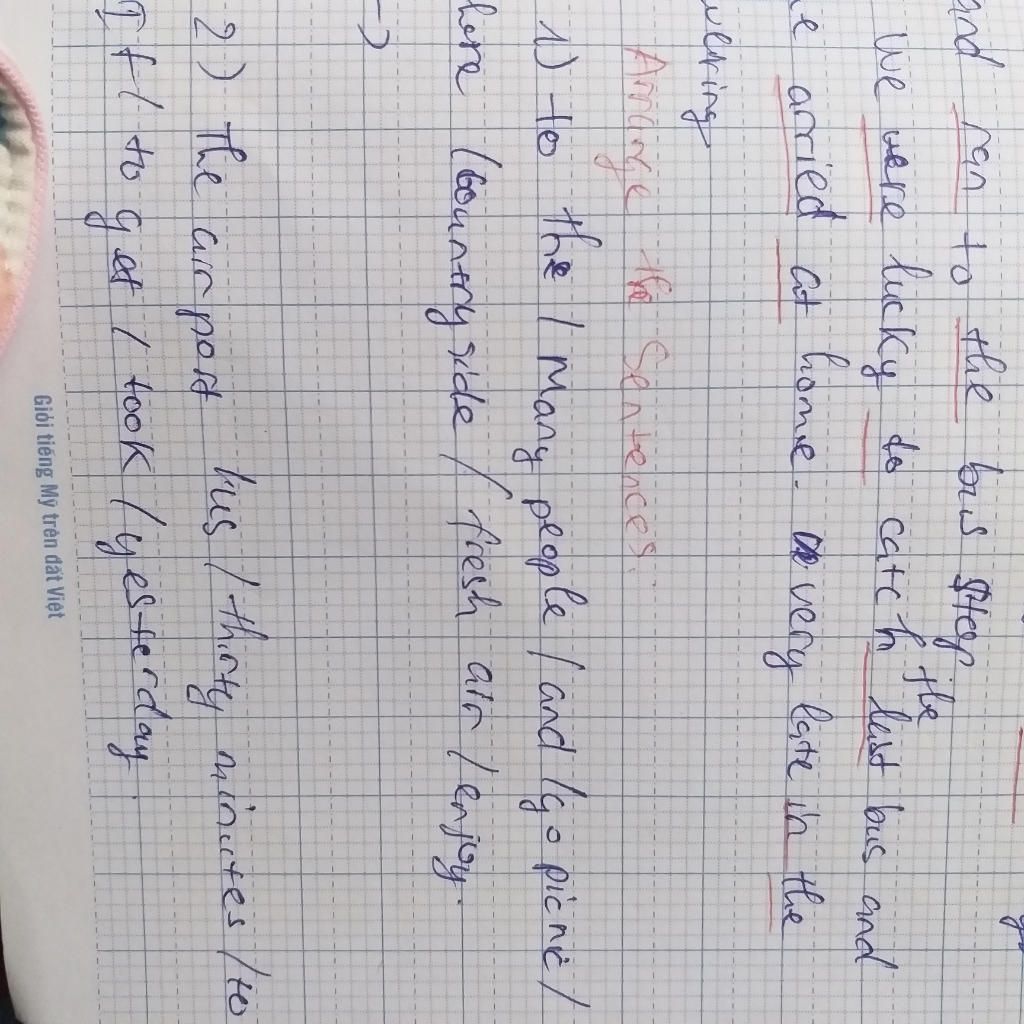 and ran to the bus stop
We were lucky to catch the last bus and
we arried at home. very late in the
evering
Arrange the Sentences.
1) to the / many people / and / go picnic /
here / countryside / fresh air / enjoy.
→
2) the airport bus / thirty minutes / to
It / to get / took / yesterday.
Giỏi tiếng Mỹ trên đất Việt